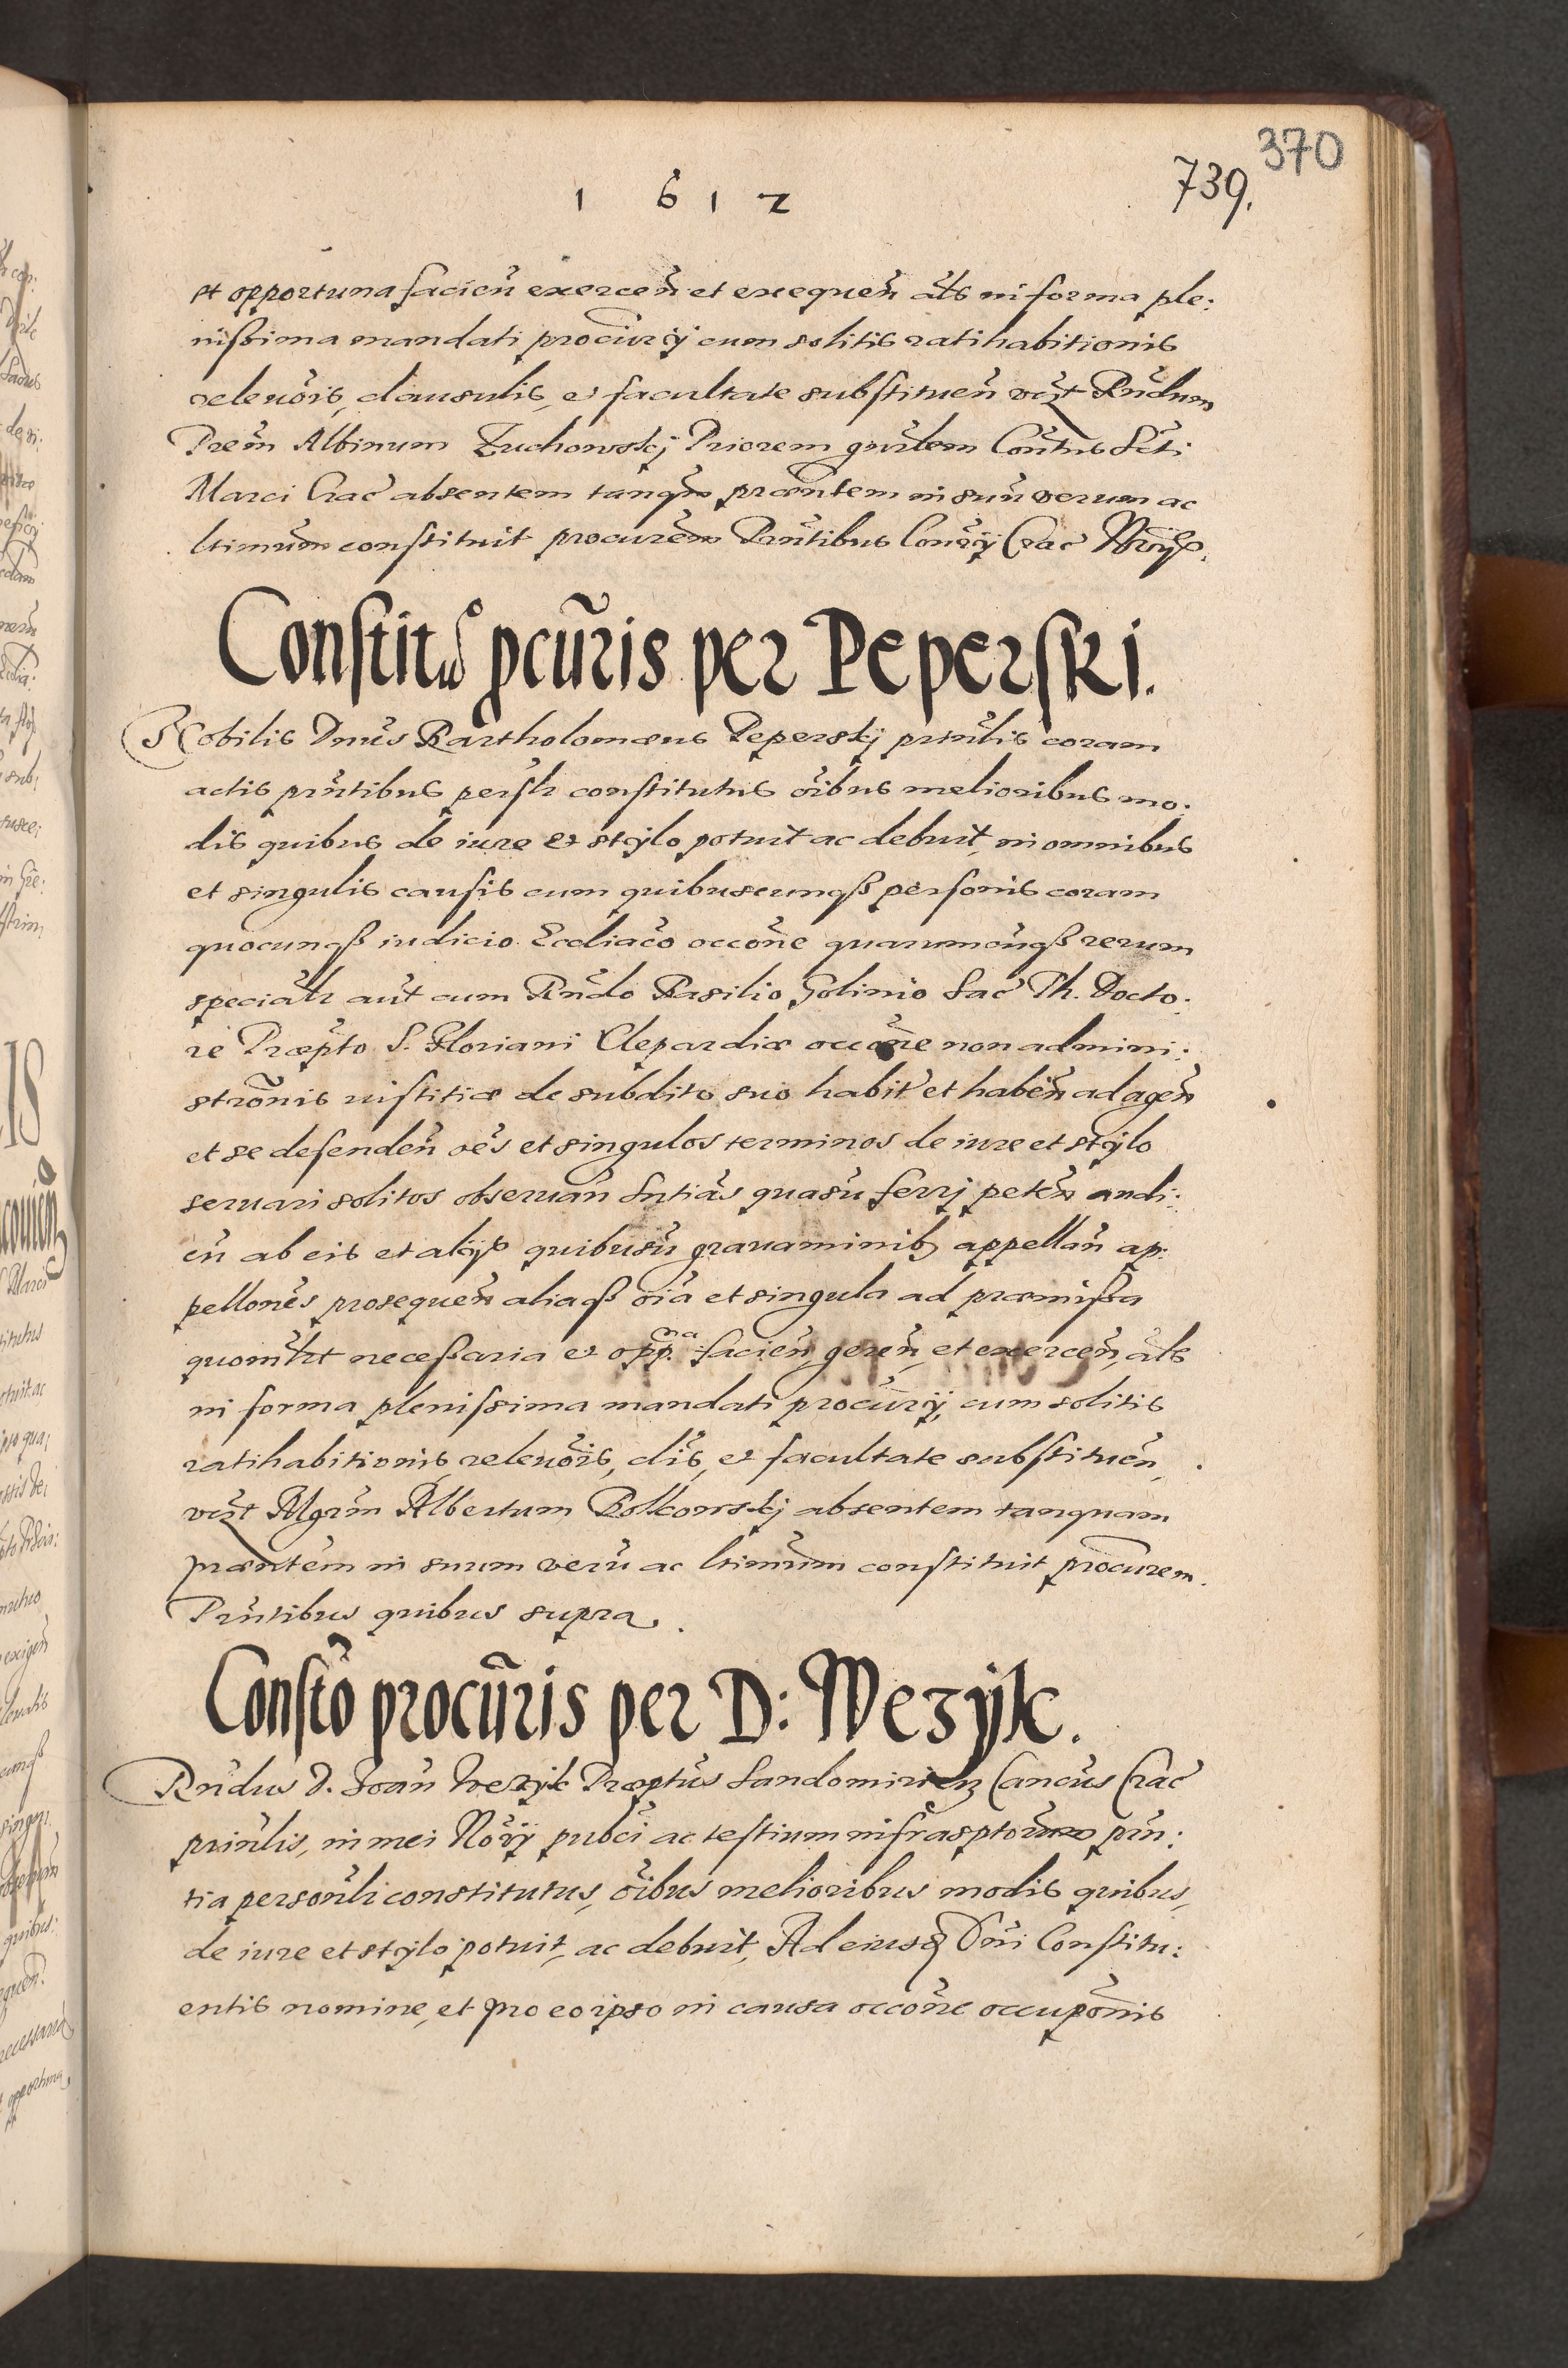 370
739.
1 6 1 2
et opportuna facień exerceń et exequeń als in forma ple:
nissima mandati procurij cum solitis ratihabitionis
releuõis, clausulis, et facultate substitueń vczt Rńdum
Prem̃ Albinum Zuchowskj Priorem gnrlem Conũtus Scti
Marci Crac̃ absentem tanq̃m præntem in suũ verum ac
ltimum constituit procurem̃ Pñtibus Consrij Crac̃ Norijs.
Constitũo pcũris per Peperski.
Nobilis Dnus Bartholomæus Peperskj prinlis coram
actis pñtibus persłr constitutus õibus melioribus mo:
dis quibus de iure et stylo potuit ac debuit, in omnibus
et singulis causis cum quibuscunqß personis coram
quocunqß iudicio Eccliac̃o occõne quarumcũqß rerum
speciałr aũt cum Rńdo Basilio Golinio Sac̃ Th. Docto:
re Præpto S. Floriani Clepardiæ occõne non admini:
strõnis iustitiæ de subdito suo habit̃ et habeń ad ageń
et se defendeń oẽs et singulos terminos de iure et stylo
seruari solitos obseruań Sntiãs quasũ ferrj peteń audi:
eń ab eis et alijs quibusũ grauaminib9 appellań ap:
pellones̃ prosequeń aliaqß õia et singula ad præmissa
quomłt necessaria et opp.na facień, gereń, et exerceń, als
in forma plenissima mandati procurij, cum solitis
ratihabitionis releuõis, clis, et facultate substitueń,
vczt Mgrm̃ Albertum Bolkowskj absentem tanquam
præntem in suum verũ ac ltimum constituit procurem.
Pñtibus quibus supra.
Constõ procũris per D: Wezÿk.
Rńdus D. Joań Wezÿk Præptus Sandomirień Cancus Crac̃
prinlis, in mei Norij pubci ac testium infrasptorum pñ:
tia personłr constitutus, õibus melioribus modis quibus,
de iure et stylo potuit, ac debuit, Ad eiusd Dni Constitu:
entis nomine, et pro eo ipso in causa occõne occupõnis